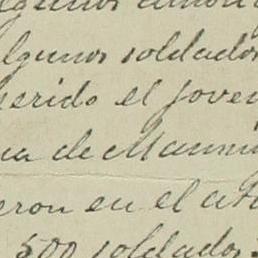 algunos
algunos soldados
herido el joven
de Manni
eron en el
500 soldados